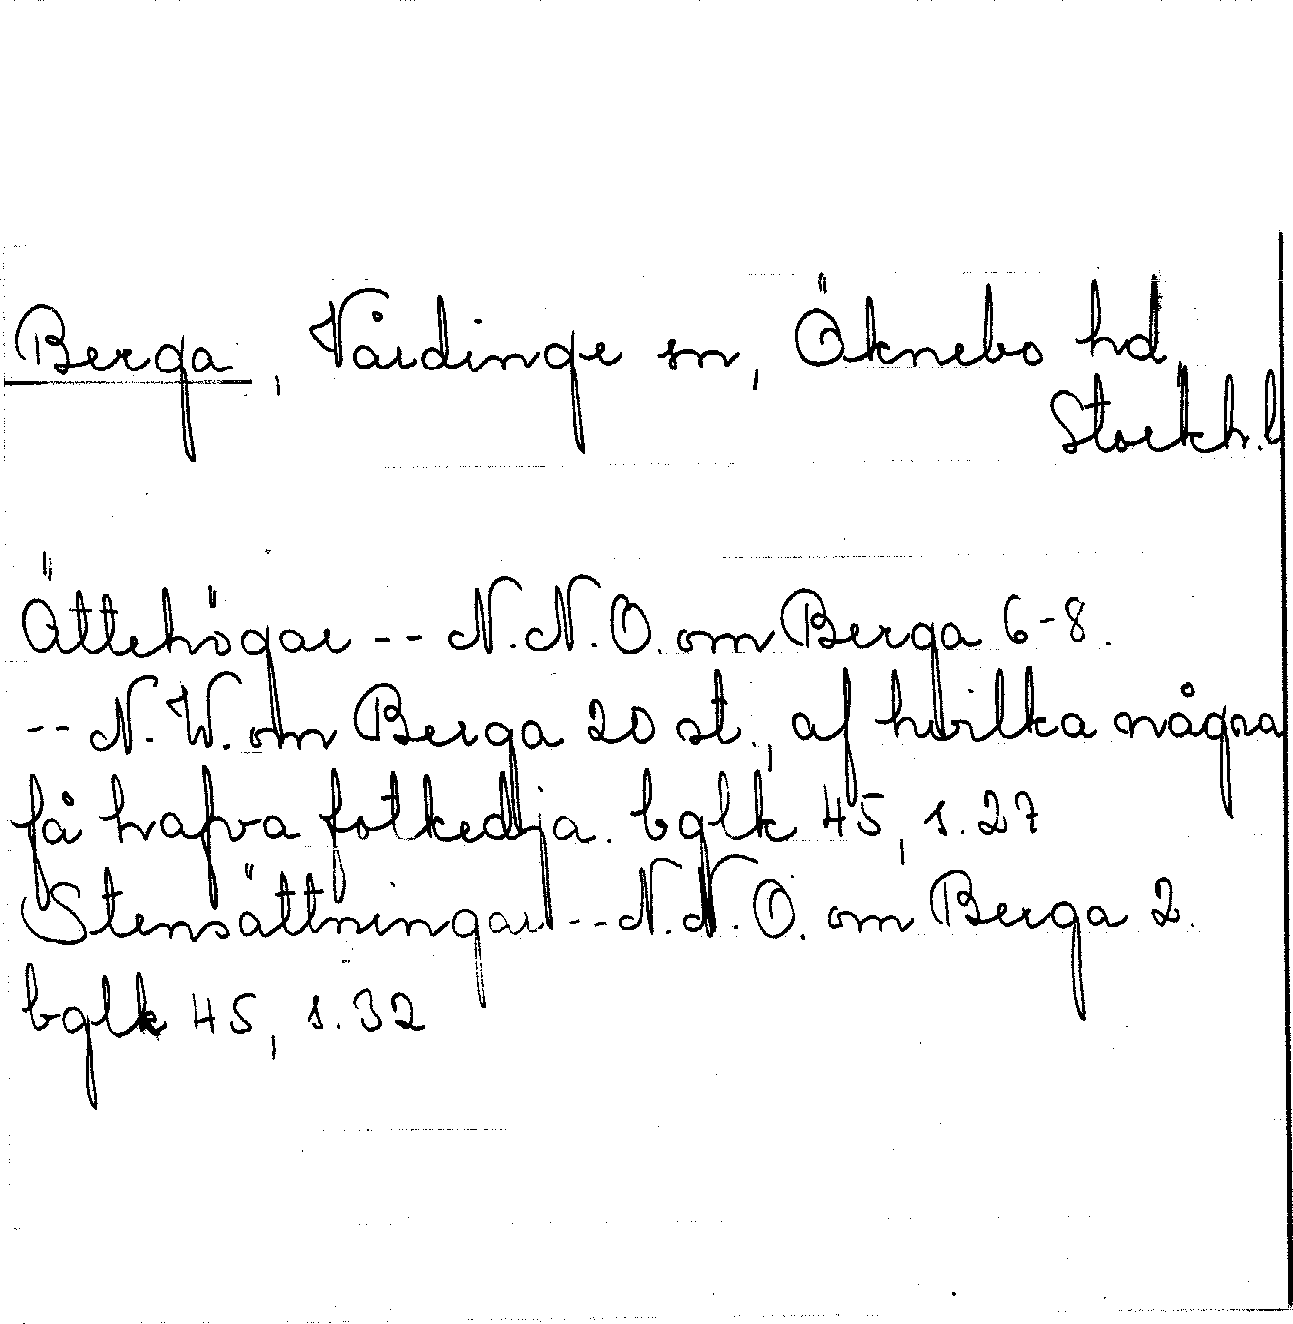 Berga, Vårdinge sn, Öknebo hd,
Stockh. l
Ättehögar -- N.N.O. om Berga 6-8.
-- N.W. om Berga 20 st., af hvilka några
få hafva fotkedja. bglk 45, s. 27
Stensättningar -- N.N.O. om Berga 2.
bglk 45, s. 32